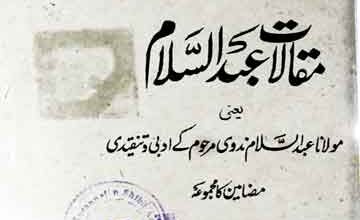 مقالات عبد السلام
یعنی
مولانا عبد السلام ندوی مرحوم کے ادبی و تنقیدی
مضامین کا مجموعہ